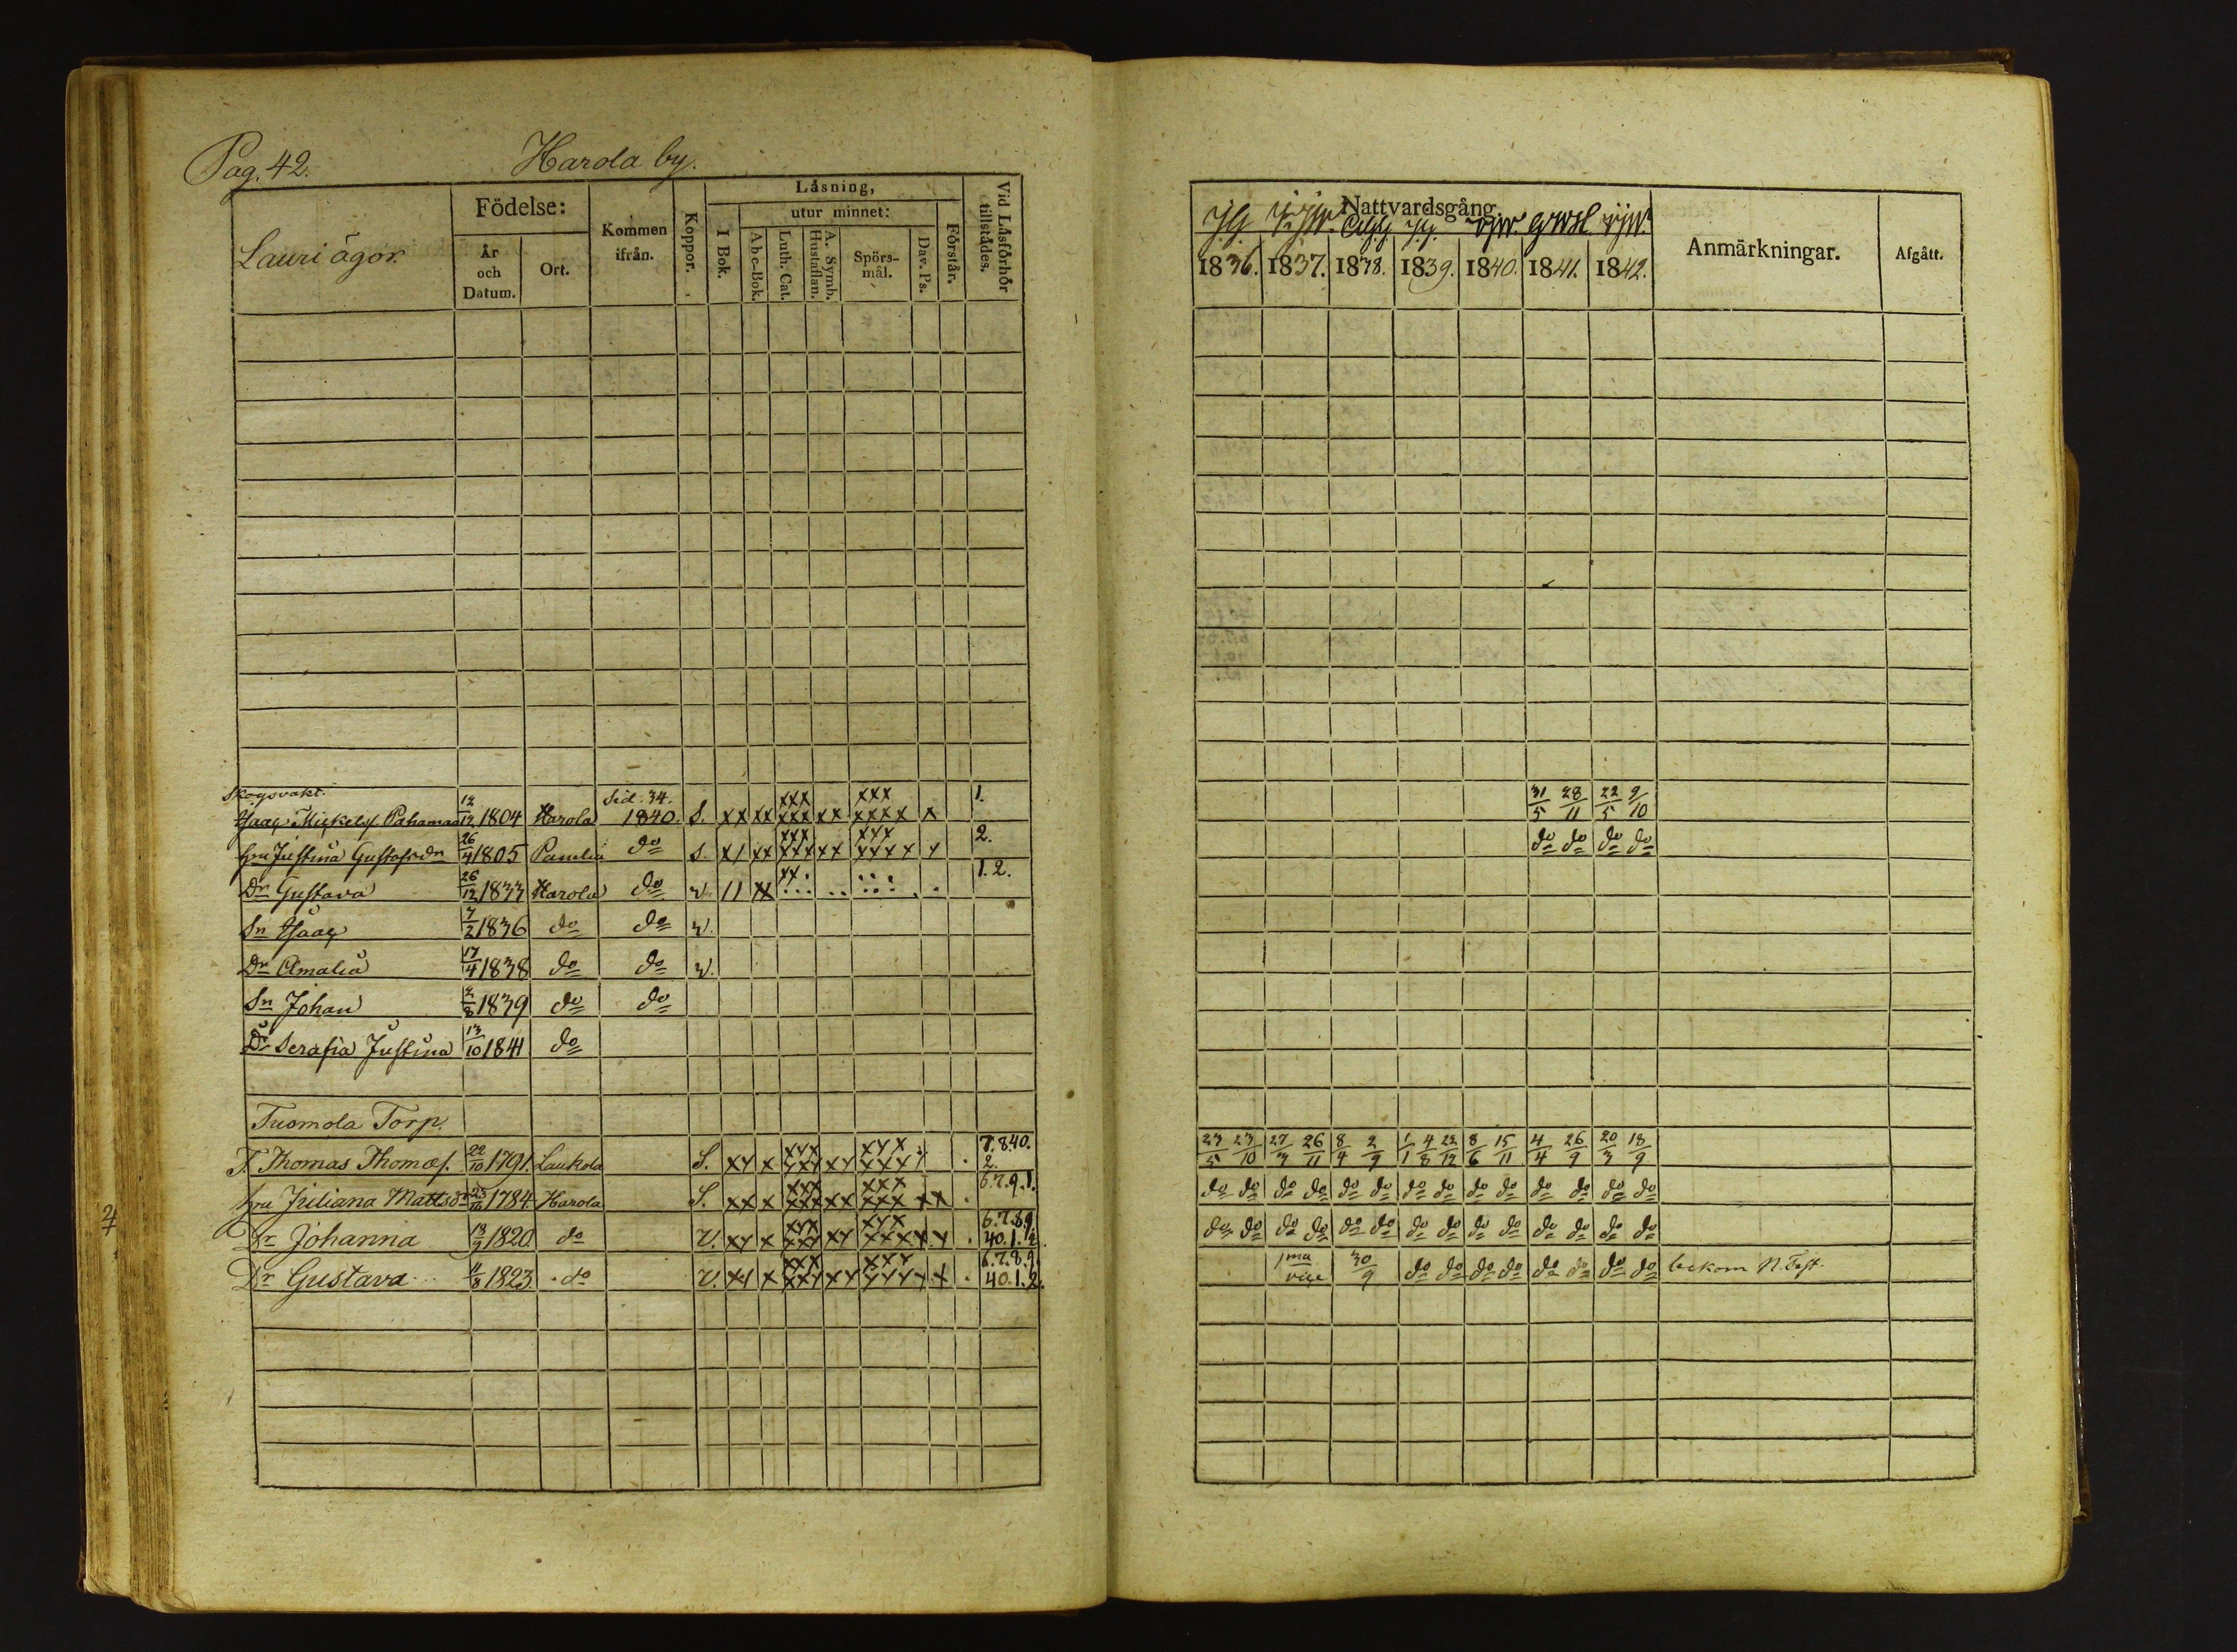 Pag. 42. Harola by.
Lauri ägor.
Födelse:
År och Datum.
Ort.
Kommen ifrån.
Koppor.
Läsning,
I Bok.
utur minnet:
Abc-Bok.
Luth. Cat.
A. Symb. Hustaflan.
Spörsmål.
Dav. Ps.
Förstår.
Vid Läsförhör tillstädes.
Nattvardsgång.
1836. 1837. 1838. 1839. 1840. 1841. 1842.
Anmärkningar.
Afgått.
Skogsvakt. Sid. 34.
Isaac Mickelss. Pahamaa 12/12 1804 Harola 1840. S. xx xx xxx xxx xx xxx xxxx x 1. 31/5 28/11 22/5 9/10
hru Justina Gustafsdr 26/4 1805 do S. x/ xx xxx xxx xx xxx xxxx x 2. do do do do
Dr Gustava 26/12 1833 Harola do v. 11 xx 1.2.
Sn Isaac 7/2 1836 do do v.
Dr Amalia 17/4 1838 do do v.
Sn Johan 2/8 1839 do do
Dr Serafia Justina 13/10 1841 do
Tuomola Torp.
T. Thomas Thomæs. 22/10 1791. Laukola S. xx x xxx xxx xx xxx xxxx . 7.8.40. 2. 23/5 23/10 27/3 26/11 8/4 2/9 1/1 4/8 22/12 8/6 15/11 4/4 26/9 20/3 18/9
hru Juliana Mattsdr 1784. Harola S. xx x xxx xxx xx xxx xxx xx . 6.7.9.1. do do do do do do do do do do do do do do
Dr Johanna 13/9 1820. do V. xx x xxx xxx xx xxx xxxx x . 6.7.8.9. 40.1.2. do do do do do do do do do do do do do do
Dr Gustava 11/8 1823. do V. xx x xxx xxx xx xxx xxxx x . 6.7.8.9. 40.1.2. 1ma vice 30/9 do do do do do do do do bekom N. Test.